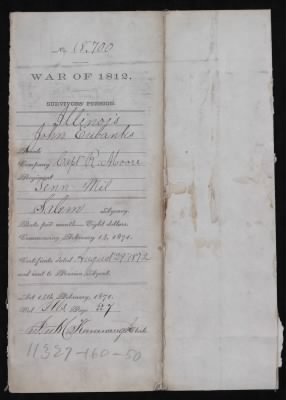 No. 18,700
WAR OF 1812.
SURVIVORS' PENSION.
Illinois
John Eubanks
Rank
Company Capt R. Moore
Regiment
Tenn Mil
Salem Agency.
Rate per month— Eight dollars.
Commencing February 14, 1871.
Certificate dated August 29th 1872
and sent to Pension Agent.
Act 14th February, 1871.
Vol. Page 47
Clerk
11327-160-50